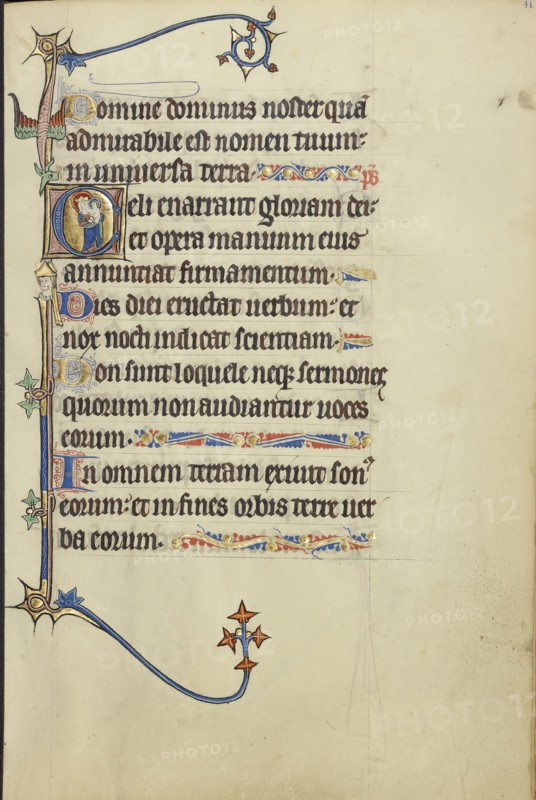 41
Domine dominus noster quā
admirabile est nomen tuum:
in universa terra. ps̄
Celi enarrant gloriam dei:
et opera manuum eius
annuntiat firmamentum.
Dies diei eructat uerbum: et
nox nocti indicat scientiam.
Non sunt loquele neqꝫ sermones
quorum non audiantur uoces
eorum.
In omnem terram exiuit sonꝰ
eorum: et in fines orbis terre uer
ba eorum.
PHOTO12